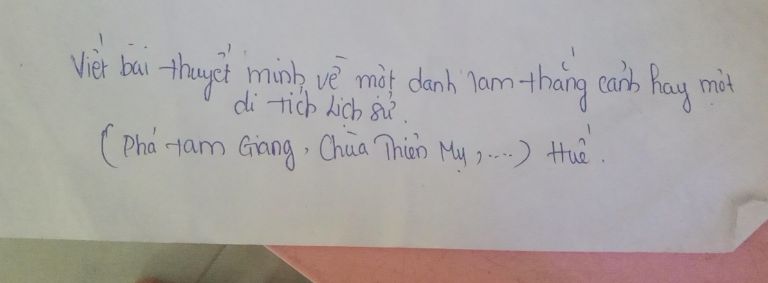 Viết bài thuyết minh về một danh lam thắng cảnh hay một
di tích lịch sử.
(Phá Tam Giang, Chùa Thiên Mụ,....) Huế.